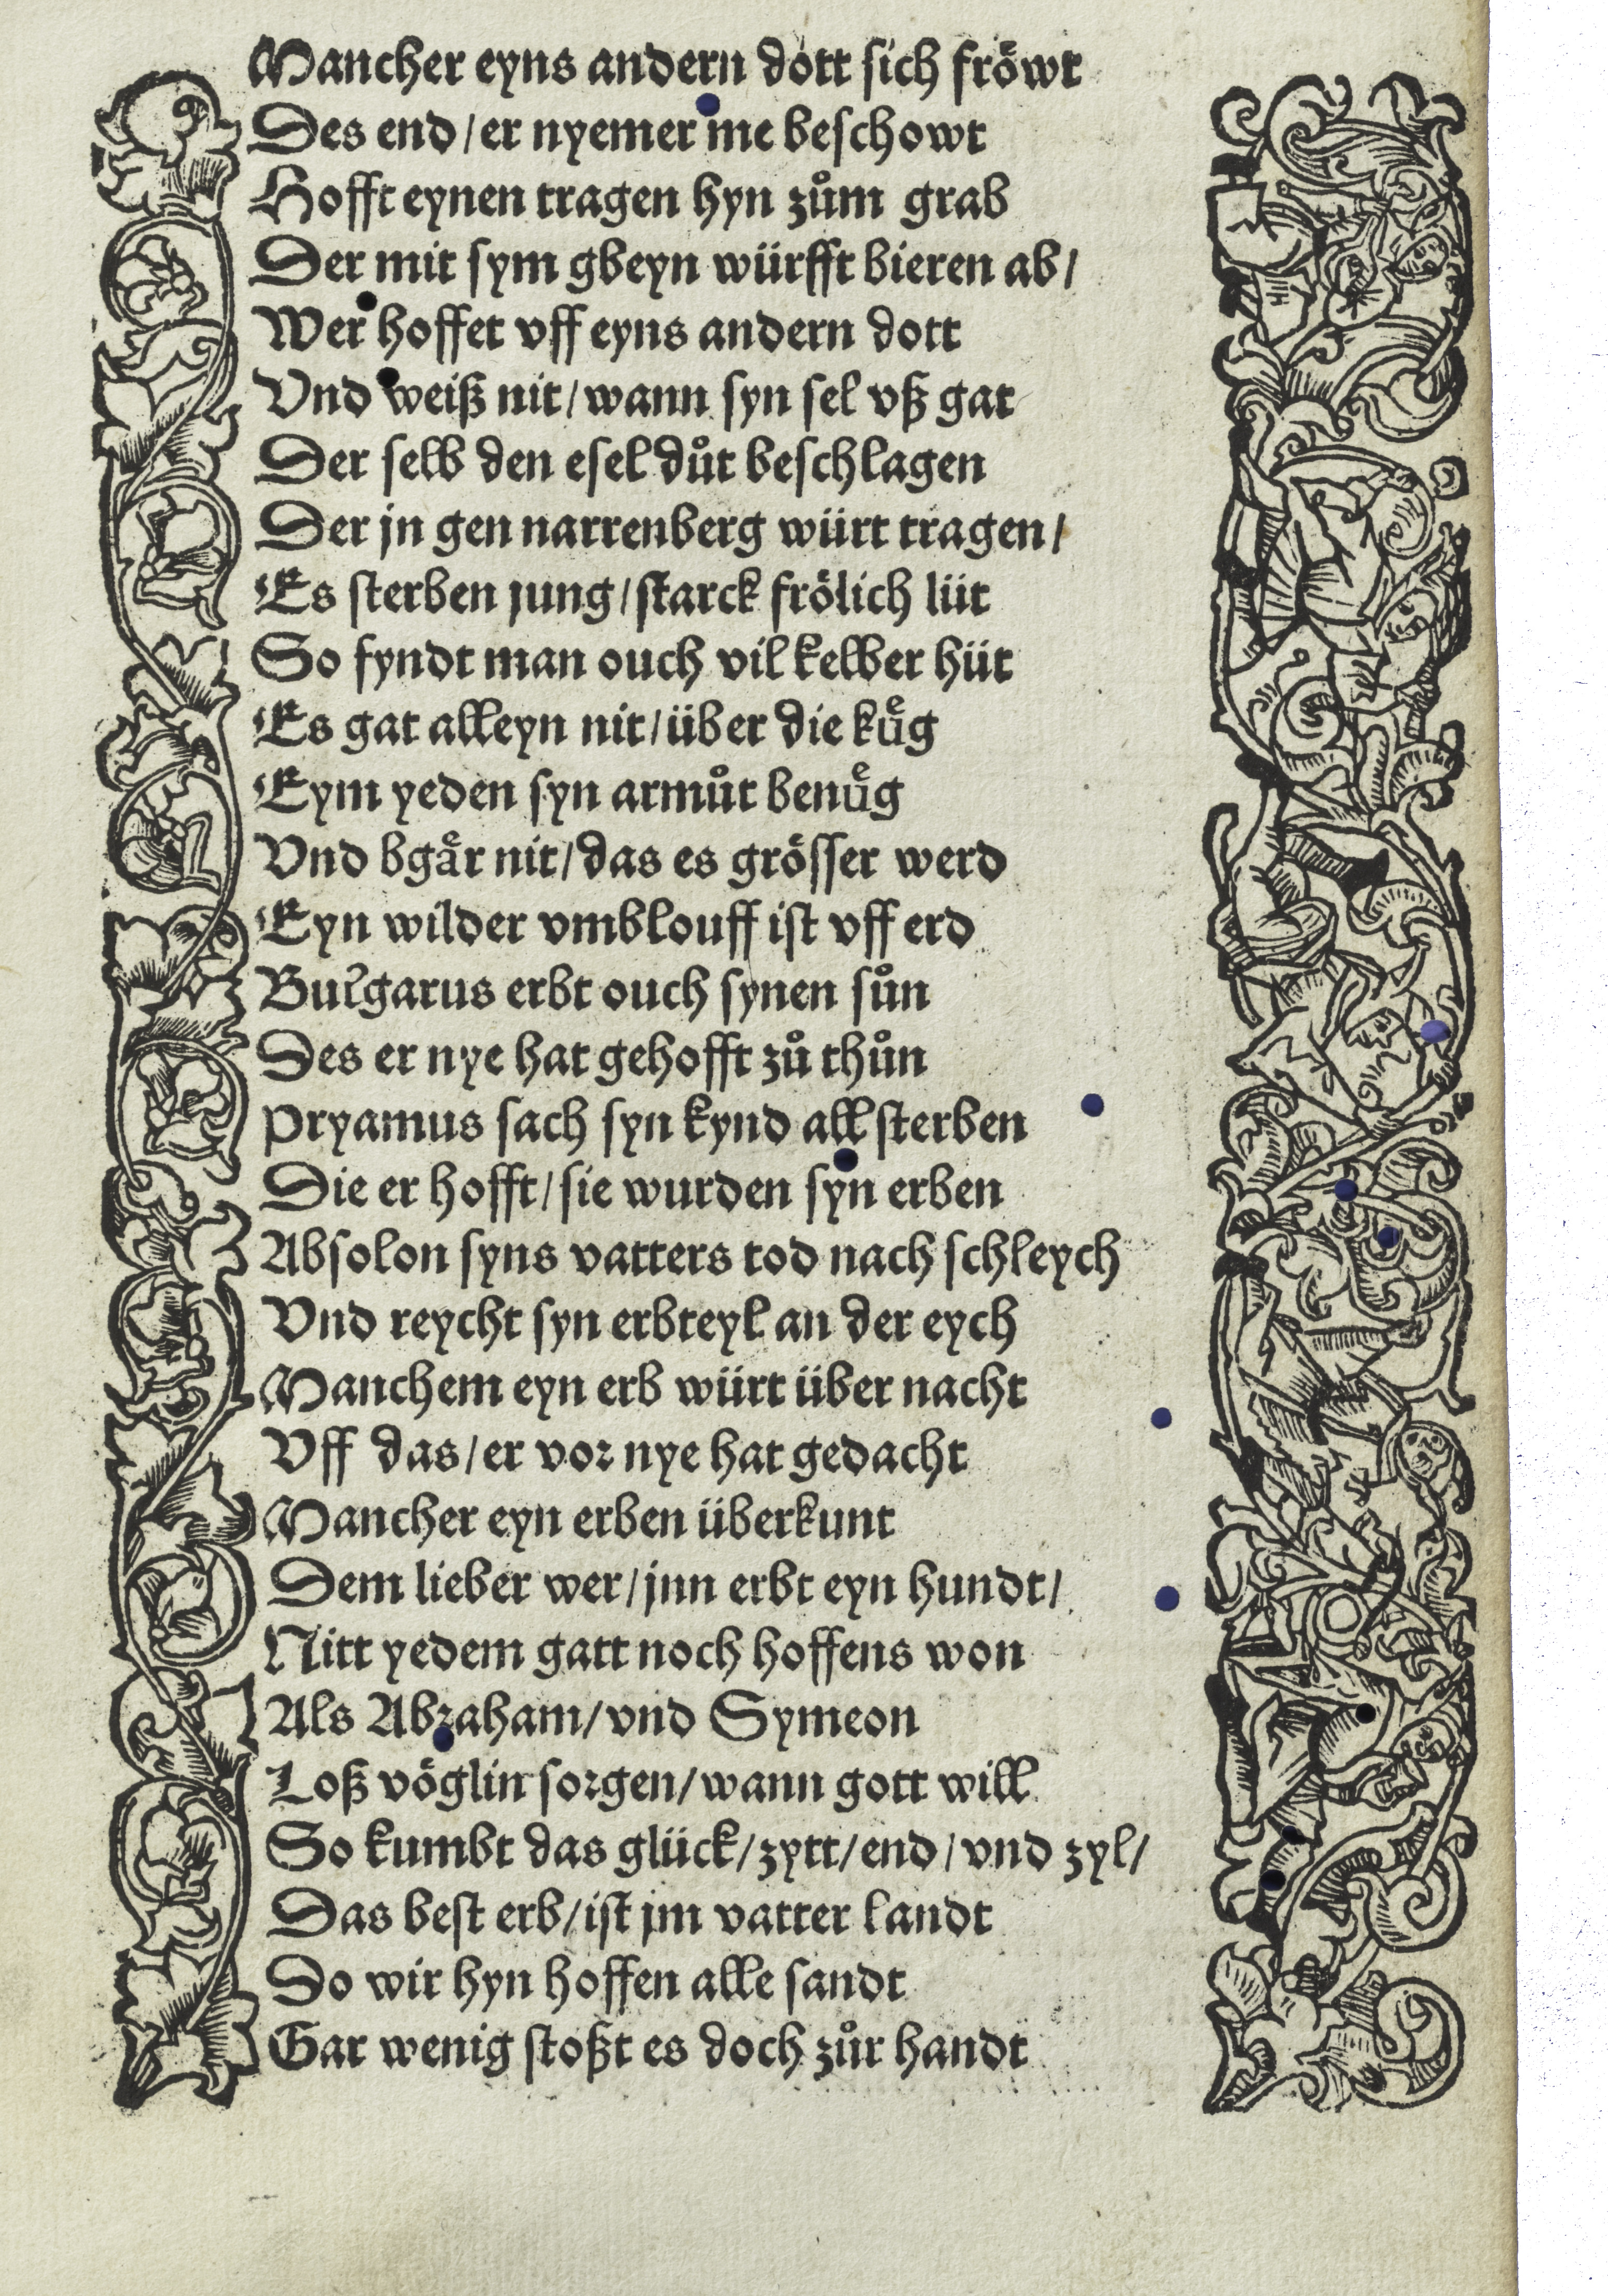 Mancher eyns andern dott sich fröwt
Des end / er nyemer me beschowt
Hofft eynen tragen hyn zům grab
Der mit sym gbeyn würfft bieren ab /
Wer hoffet vff eyns andern dott
Vnd weiß nit / wann syn sel vß gat
Der selb den esel důt beschlagen
Der jn gen narrenberg würt tragen /
Es sterben jung / starck frölich lüt
So fyndt man ouch vil kelber hüt
Es gat alleyn nit / über die kuͤg
Eym yeden syn armůt benuͤg
Vnd bgaͤr nit / das es grösser werd
Eyn wilder vmblouff ist vff erd
Bulgarus erbt ouch synen sůn
Des er nye hat gehofft zů thůn
Pryamus sach syn kynd all sterben
Die er hofft / sie wurden syn erben
Absolon syns vatters tod nach schleych
Vnd reycht syn erbteyl an der eych
Manchem eyn erb würt über nacht
Vff das / er vor nye hat gedacht
Mancher eyn erben überkunt
Dem lieber wer / jnn erbt eyn hundt /
Nitt yedem gatt noch hoffens won
Als Abraham / vnd Symeon
Loß vöglin sorgen / wann gott will
So kumbt das glück / zytt / end / vnd zyl /
Das best erb / ist jm vatter landt
Do wir hyn hoffen alle sandt
Gar wenig stoßt es doch zůr handt